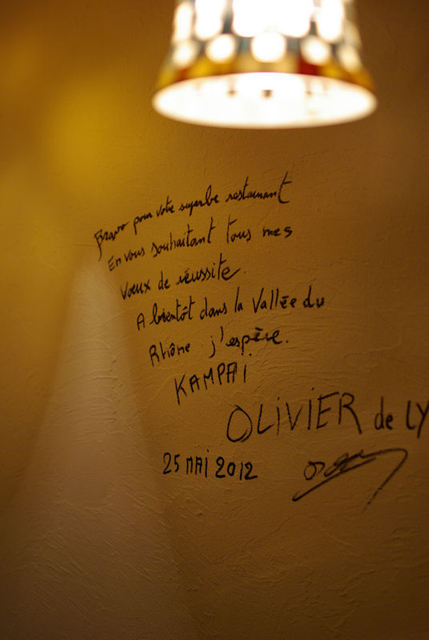 Bravo pour votre superbe restaurant
En vous souhaitant tous mes
vœux de réussite.
A bientôt dans la Vallée du
Rhône j'espère.
KAMPAi
OLiViER de LY
25 MAi 2012